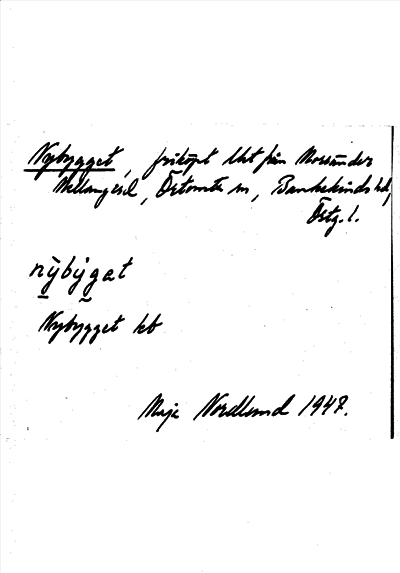 Nybygget, friköpt lht från Mossända
Mellangård, Örtomta sn, Bankekinds hd,
Östg. l.
nỳbỳgat
Nybygget kb
Maja Nordlund 1947.